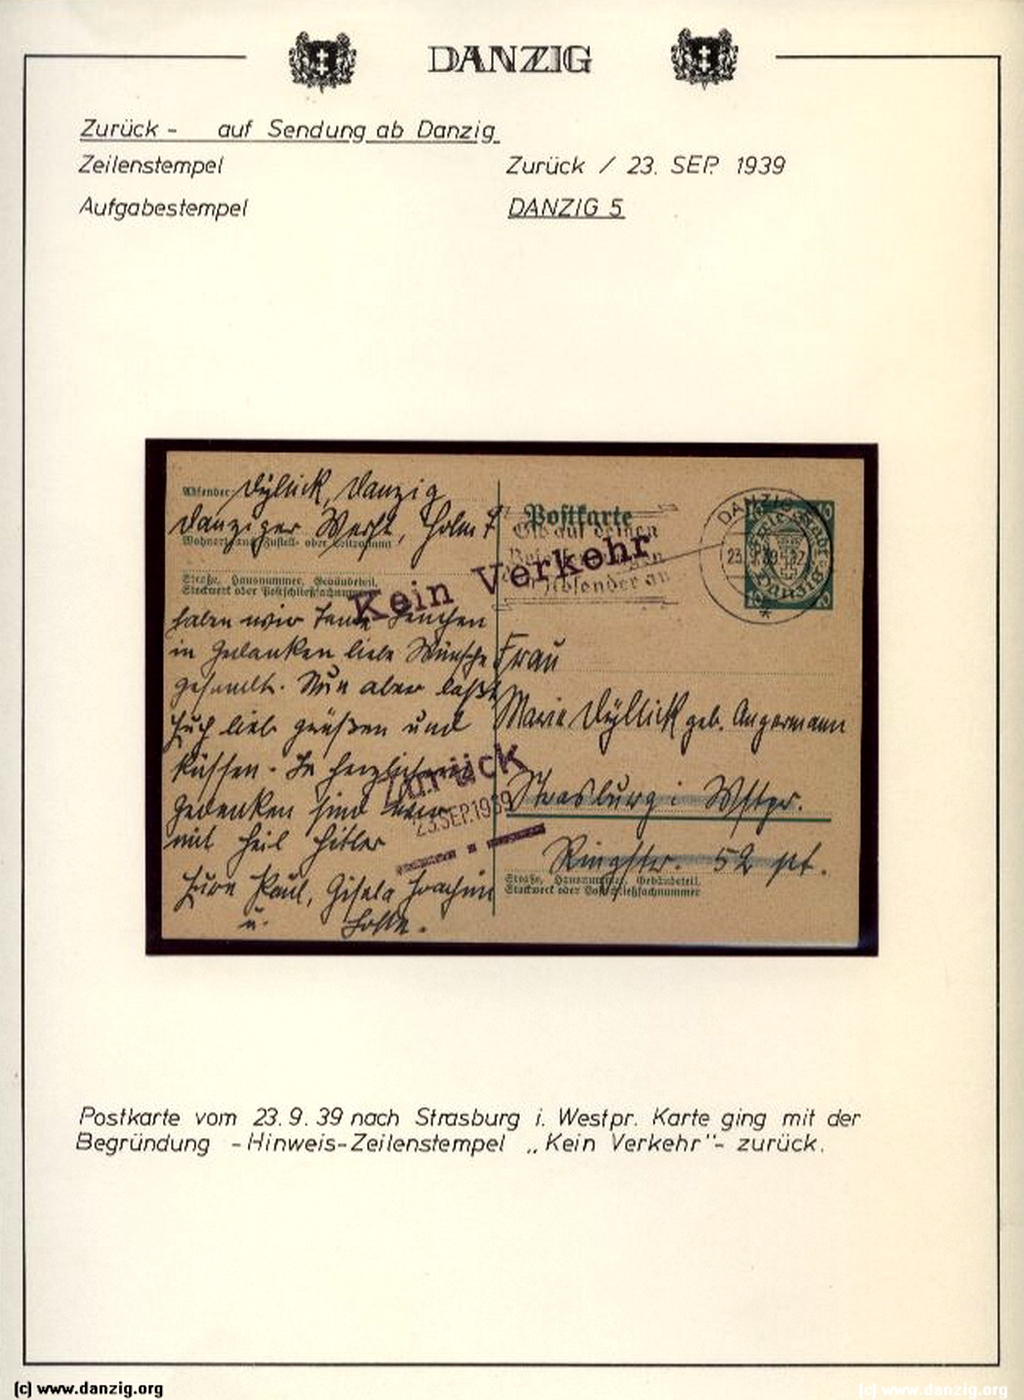 DANZIG
Zurück - auf Sendung ab Danzig
Zeilenstempel Zurück / 23. SEP. 1939
Aufgabestempel DANZIG 5
Absender: Dyllick, Danzig
Danziger Werft, Holm
Wohnort, auch Zustell- oder Leitpostamt
Straße, Hausnummer, Gebäudeteil,
Stockwerk oder Postschließfachnummer
Postkarte
Gib auf deinen
den Absender an
Kein Verkehr
DANZIG
23.9.39
Freie Stadt
Danzig
10 10
haben wir Tante
in Gedanken liebe Wünsche
gesandt. Nun aber laßt
Euch lieb grüßen und
küssen. In herzlichem
Gedenken sind wir
mit Heil Hitler
Eure Paul, Gisela Joachim
u.
Zurück
23.SEP.1939
Frau
Marie Dyllick geb. Angermann
Strasburg i Wstpr.
Ringstr. 52 pt.
Straße, Hausnummer, Gebäudeteil,
Stockwerk oder Postschließfachnummer
Postkarte vom 23.9.39 nach Strasburg i. Westpr. Karte ging mit der
Begründung - Hinweis-Zeilenstempel „Kein Verkehr"- zurück.
(c) www.danzig.org
(c) www.danzig.org